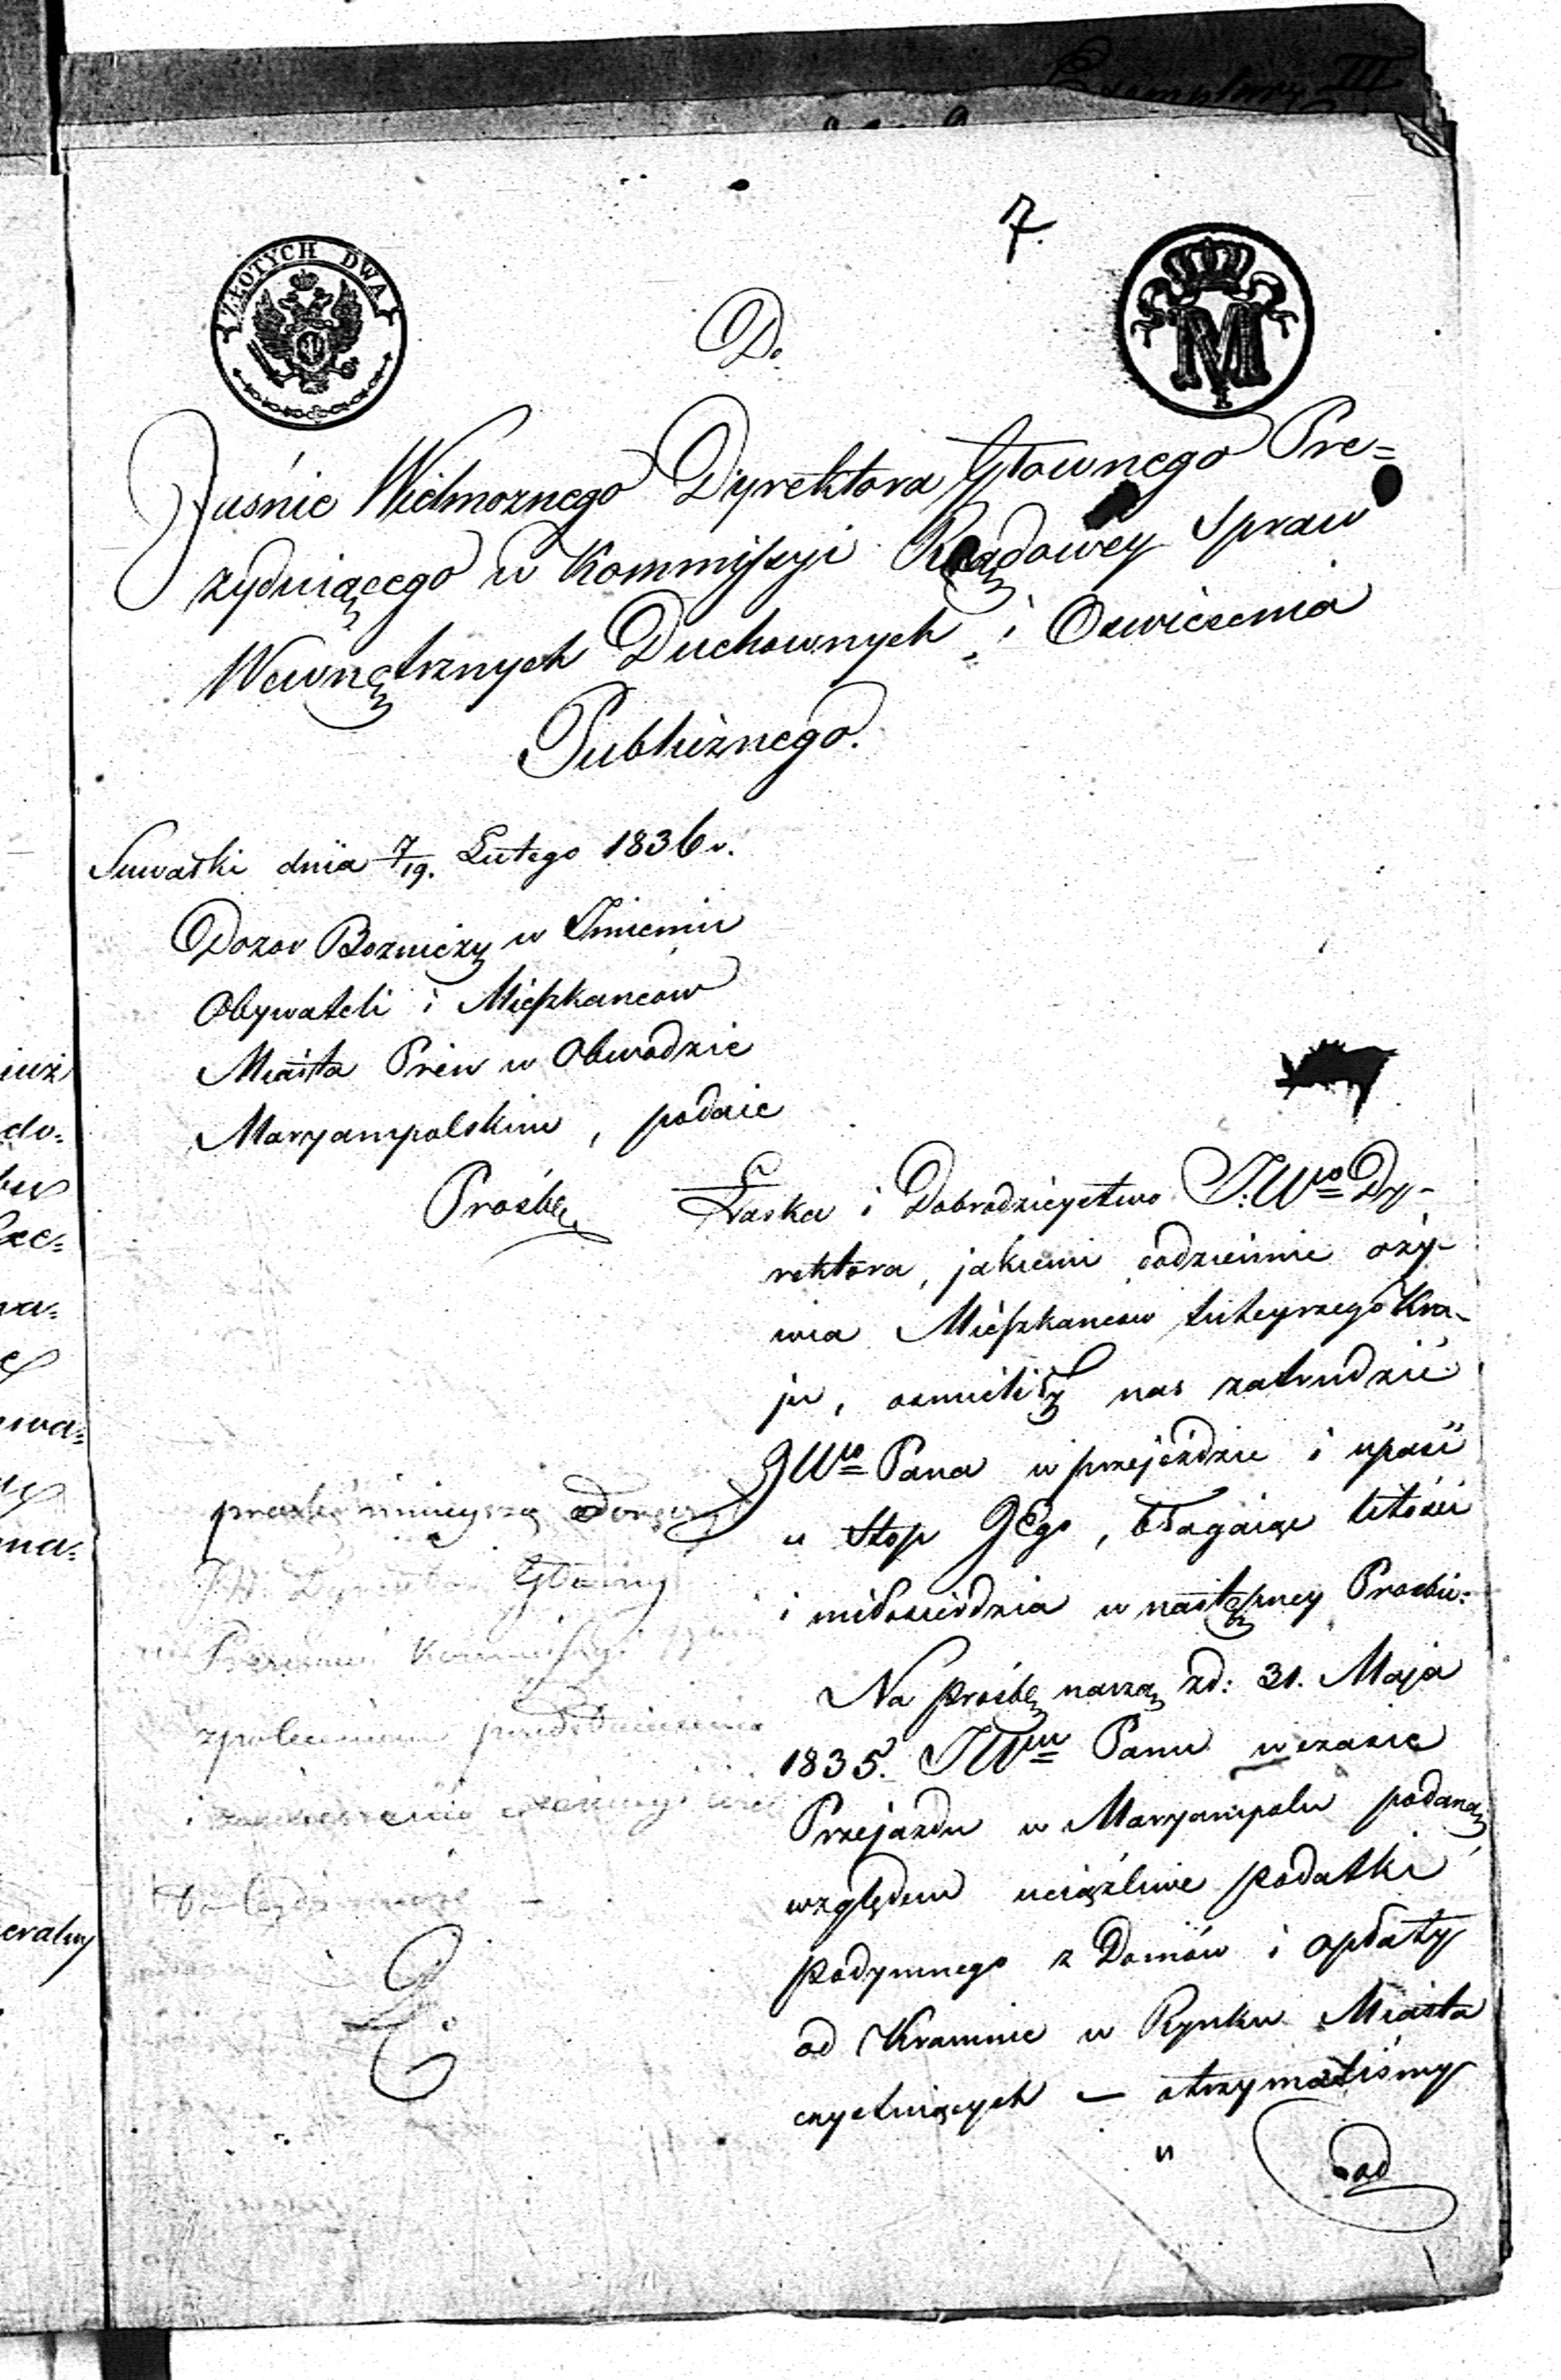 7.
ZŁOTYCH DWA
M
Do
Jaśnie Wielmożnego Dyrektora Głownego Pre=
zyduiącego w Kommissyi Rządowey Spraw
Wewnętrznych Duchownych i Oswiecenia
Publicznego.
Suwałki dnia 7/19. Lutego 1836 r.
Dozor Bozniczy w Imieniu
Obywateli i Mieszkancow
Miasta Pren w Obwodzie
Maryampolskim, podaie
Prośbę
Łaska i Dobrodzieystwo J.Wo Dy-
rektora, jakiemi codziennie oży-
wia Mieszkancow tuteyszego Kra-
ju, osmieliły nas zatrudzić
JWo Pana w przejeździe i upaść
u Stop JEgo, błagaiąc litości
i miłosierdzia w następney Prosbie:
Na prośbę naszą zd: 31. Maja
1835. JWmu Panu w czasie
Przejazdu w Maryampolu podaną,
względem uciążliwe podatki
podymnego z Domów i opłaty
od Kramnic w Rynku Miasta
exystuiących — otrzymaliśmy
od
prosbę ninieyszą
J.W. Dyrektor Główny
i
eralny